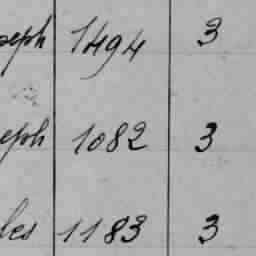 seph 1494 3
eph 1082 3
les 1183 3